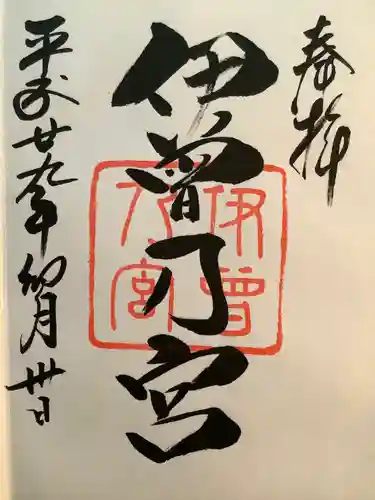 奉拝
伊曽乃宮
伊曽乃宮
平成廿九年卯月卅日